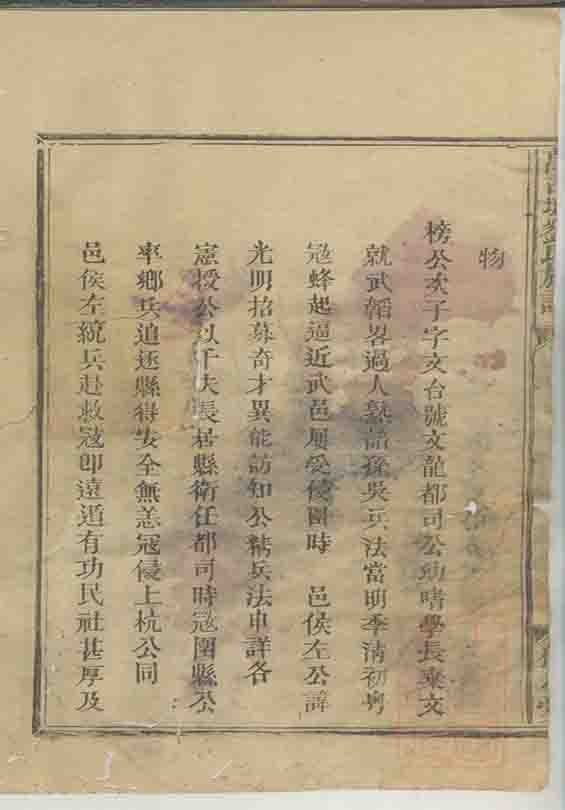 物
榜公次子字文台號文龍都司公幼嗜學長棄文
就武韜畧過人熟諳孫吳兵法當明季清初粵
冦蜂起逼近武邑屢受侵圍時 邑侯左公諱
光明招募奇才異能訪知公精兵法申詳各
憲授公以千夫長居縣衛任都司時冦圍縣公
率鄉兵追逐縣得安全無恙冦侵上杭公同
邑侯左統兵赴救冦即遠遁有功民社甚厚及
劉氏族譜